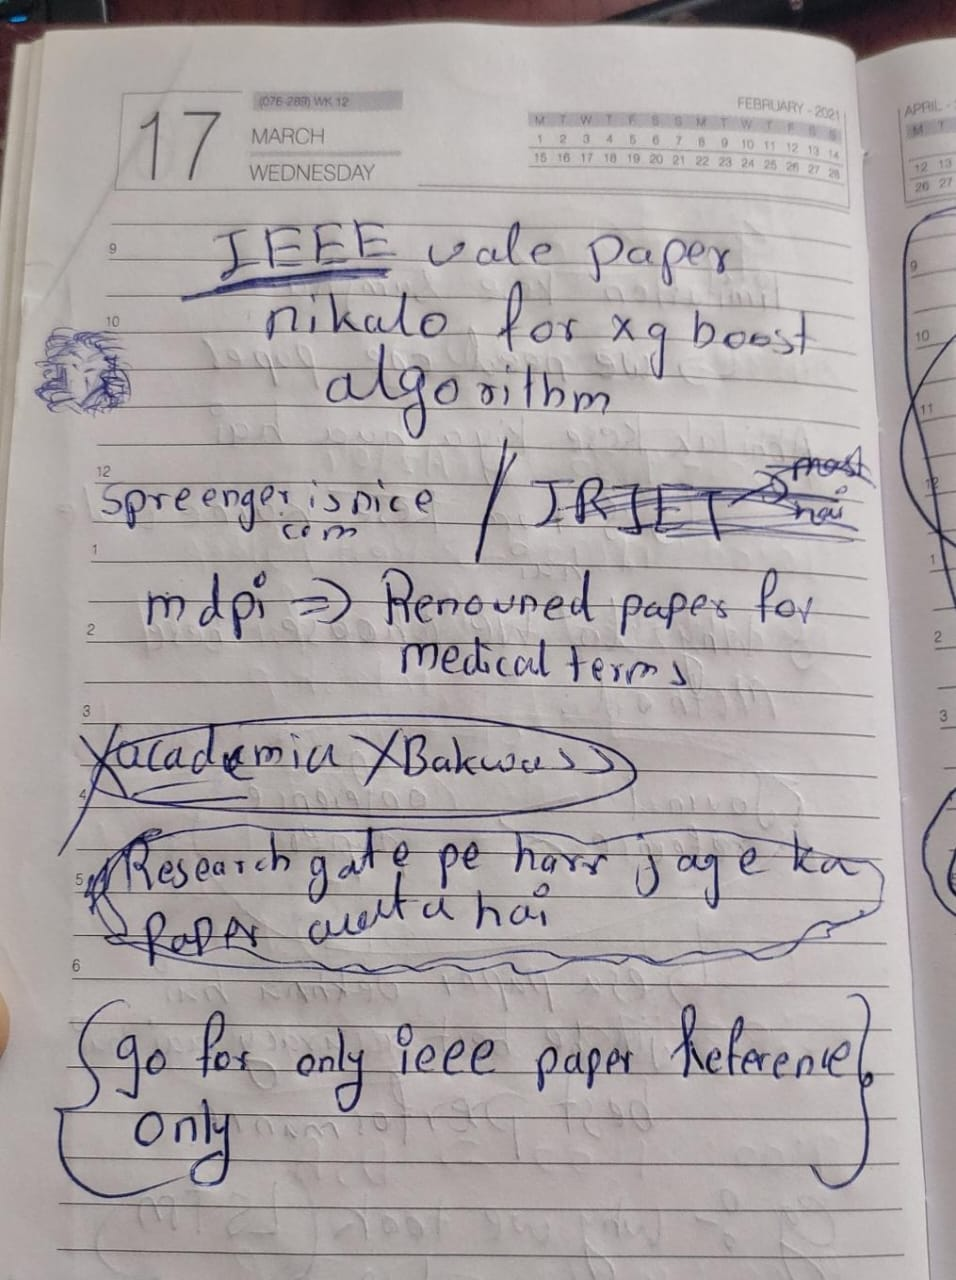 (076-289) WK 12
17
MARCH
WEDNESDAY
FEBRUARY - 2021
M T W T F S S M T W T F S S
1 2 3 4 5 6 7 8 9 10 11 12 13 14
15 16 17 18 19 20 21 22 23 24 25 26 27 28
APRIL -
M T
12 13
26 27
9
IEEE vale paper
10
nikalo for xg boost
algorithm
12
Spreenger is nice / IRJET most
com hai
1
mdpi ⇒ Renouned paper for
2
medical terms
3
Xacademia XBakwass
4
Research gate pe harr jage ka
5
Paper aata hai
6
{go for only ieee paper Reference}
only
9
10
11
12
1
2
3